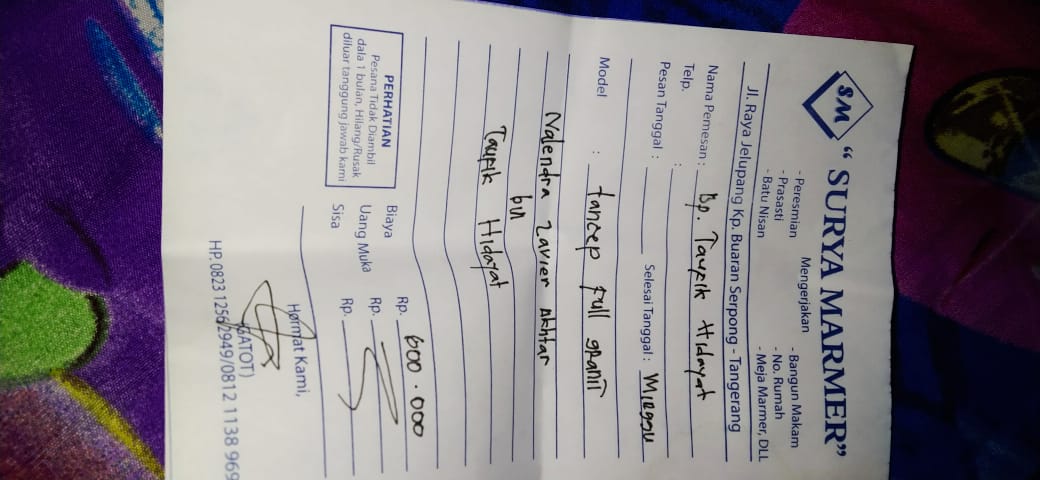 SM
“ SURYA MARMER”
Mengerjakan
- Peresmian
- Prasasti
- Batu Nisan
- Bangun Makam
- No. Rumah
- Meja Marmer, DLL
Jl. Raya Jelupang Kp. Buaran Serpong - Tangerang
Nama Pemesan : Bp. Taufik Hidayat
Telp. :
Pesan Tanggal : Selesai Tanggal : Minggu
Model : tancep full granit
Nalendra Zavier Akhtar
bin
Taufik Hidayat
PERHATIAN
Pesana Tidak Diambil
dala 1 bulan, Hilang/Rusak
diluar tanggung jawab kami
Biaya Rp. 600.000
Uang Muka Rp.
Sisa Rp.
Hormat Kami,
(GATOT)
HP. 0823 1256 2949/0812 1138 969